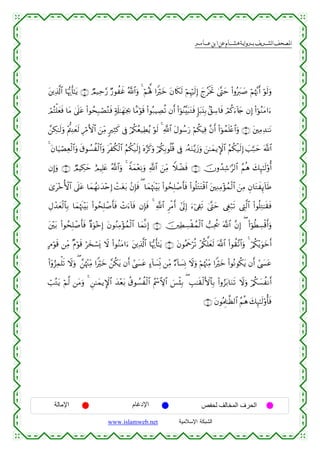 المصحف الشريف برواية هشام عن ابن عامر
وَلَوْ أَنَّهُمْ صَبَرُوا۟ حَتَّىٰ تَخْرُجَ إِلَيْهِمْ لَكَانَ خَيْرًا لَّهُمْ ۚ وَٱللَّهُ غَفُورٌ رَّحِيمٌ ۝ يَـٰٓأَيُّهَا ٱلَّذِينَ
ءَامَنُوٓا۟ إِن جَآءَكُمْ فَاسِقٌۢ بِنَبَإٍ فَتَبَيَّنُوٓا۟ أَن تُصِيبُوا۟ قَوْمًۢا بِجَهَـٰلَةٍ فَتُصْبِحُوا۟ عَلَىٰ مَا فَعَلْتُمْ
نَـٰدِمِينَ ۝ وَٱعْلَمُوٓا۟ أَنَّ فِيكُمْ رَسُولَ ٱللَّهِ ۚ لَوْ يُطِيعُكُمْ فِى كَثِيرٍ مِّنَ ٱلْأَمْرِ لَعَنِتُّمْ وَلَـٰكِنَّ
ٱللَّهَ حَبَّبَ إِلَيْكُمُ ٱلْإِيمَـٰنَ وَزَيَّنَهُۥ فِى قُلُوبِكُمْ وَكَرَّهَ إِلَيْكُمُ ٱلْكُفْرَ وَٱلْفُسُوقَ وَٱلْعِصْيَانَ ۚ
أُو۟لَـٰٓئِكَ هُمُ ٱلرَّٰشِدُونَ ۝ فَضْلًا مِّنَ ٱللَّهِ وَنِعْمَةً ۚ وَٱللَّهُ عَلِيمٌ حَكِيمٌ ۝ وَإِن
طَآئِفَتَانِ مِنَ ٱلْمُؤْمِنِينَ ٱقْتَتَلُوا۟ فَأَصْلِحُوا۟ بَيْنَهُمَا ۖ فَإِنۢ بَغَتْ إِحْدَىٰهُمَا عَلَى ٱلْأُخْرَىٰ
فَقَـٰتِلُوا۟ ٱلَّتِى تَبْغِى حَتَّىٰ تَفِىٓءَ إِلَىٰٓ أَمْرِ ٱللَّهِ ۚ فَإِن فَآءَتْ فَأَصْلِحُوا۟ بَيْنَهُمَا بِٱلْعَدْلِ
وَأَقْسِطُوٓا۟ ۖ إِنَّ ٱللَّهَ يُحِبُّ ٱلْمُقْسِطِينَ ۝ إِنَّمَا ٱلْمُؤْمِنُونَ إِخْوَةٌ فَأَصْلِحُوا۟ بَيْنَ
أَخَوَيْكُمْ ۚ وَٱتَّقُوا۟ ٱللَّهَ لَعَلَّكُمْ تُرْحَمُونَ ۝ يَـٰٓأَيُّهَا ٱلَّذِينَ ءَامَنُوا۟ لَا يَسْخَرْ قَوْمٌ مِّن قَوْمٍ
عَسَىٰٓ أَن يَكُونُوا۟ خَيْرًا مِّنْهُمْ وَلَا نِسَآءٌ مِّن نِّسَآءٍ عَسَىٰٓ أَن يَكُنَّ خَيْرًا مِّنْهُنَّ ۖ وَلَا تَلْمِزُوٓا۟
أَنفُسَكُمْ وَلَا تَنَابَزُوا۟ بِٱلْأَلْقَـٰبِ ۖ بِئْسَ ٱلِٱسْمُ ٱلْفُسُوقُ بَعْدَ ٱلْإِيمَـٰنِ ۚ وَمَن لَّمْ يَتُبْ
فَأُو۟لَـٰٓئِكَ هُمُ ٱلظَّـٰلِمُونَ ۝
الحرف المخالف لحفص الإدغام الإمالة
الشبكة الإسلامية www.islamweb.net